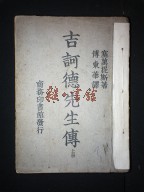 塞萬提斯著
傅東華譯
吉訶德先生傳
商務印書館發行